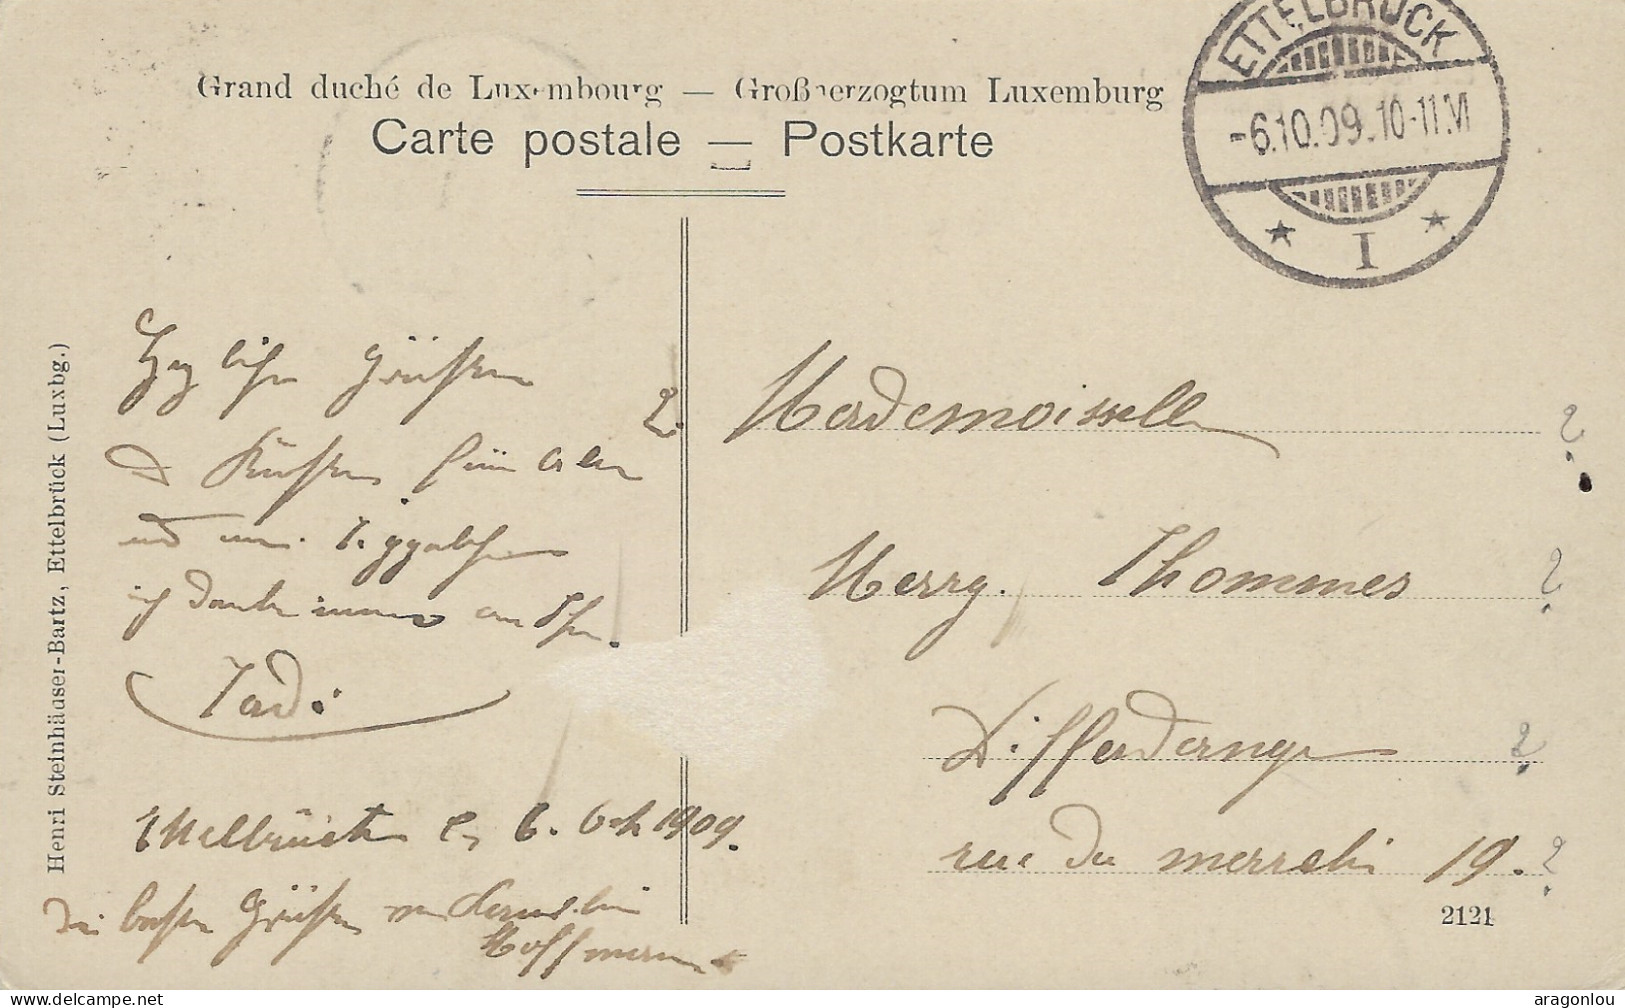 Grand duché de Luxembourg — Großherzogtum Luxemburg
Carte postale — Postkarte
ETTELBRÜCK
-6.10.09.10-11.V
* I *
Henri Steinhäuser-Bartz, Ettelbrück (Luxbg.)
Herzlichen Grüßen
& Küßen für
und
ich danke immer an Ihr.
Ettelbrück 6. Okt 1909.
Die besten Grüßen von
Hoffmann
Mademoiselle
Margg. Thommes
Differdange
rue du 19.
2121
aragonlou